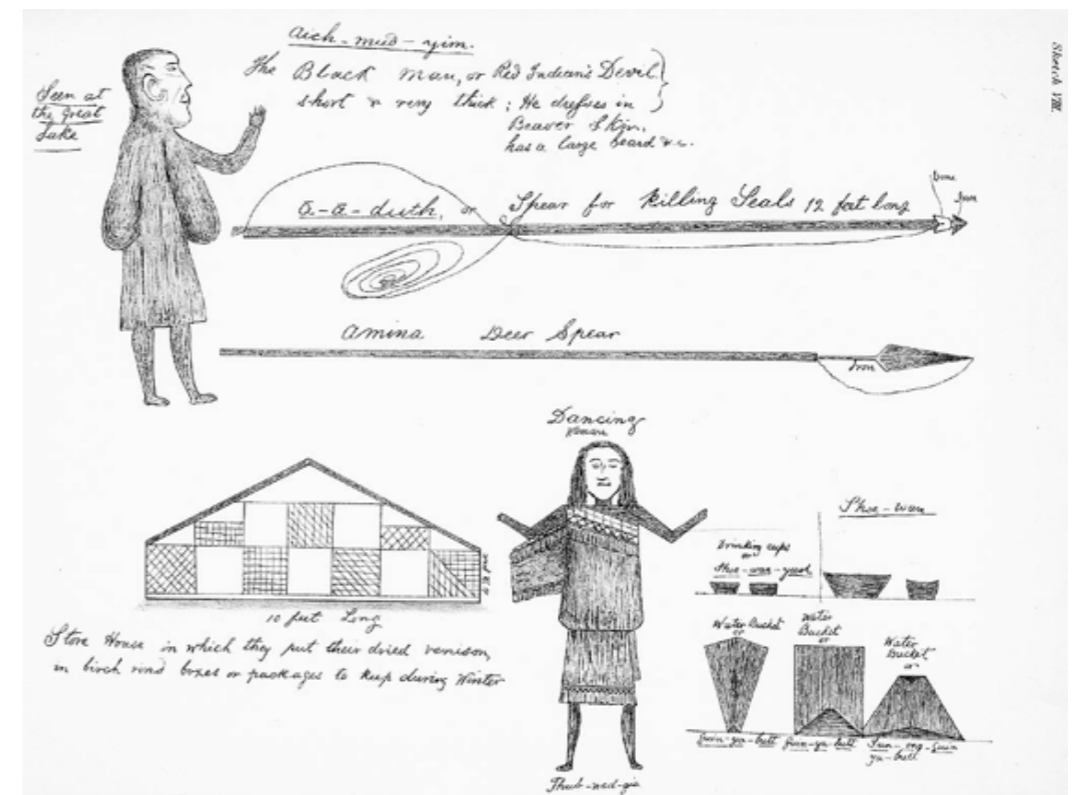 Sketch VIII.
Aich-mud-yim.
The Black Man, or Red Indian's Devil
short & very thick; He dresses in
Beaver Skin,
has a large beard &c.
Seen at
the Great
Lake
a-a-duth, or Spear for killing Seals 12 feet long
bone
Iron
amina Deer Spear
Iron
Dancing
Woman
10 feet Long
Store House in which they put their dried venison,
in birch rind boxes or packages to keep during Winter
Thub-wed-gie
Shoe-wan
Drinking cups
or
Shoe-wan-yeesh
Water Bucket
or
Guin-ya-butt
Water
Bucket
or
Guin-ya-butt
Water
Bucket
or
Sun-ong-guin
ya-butt